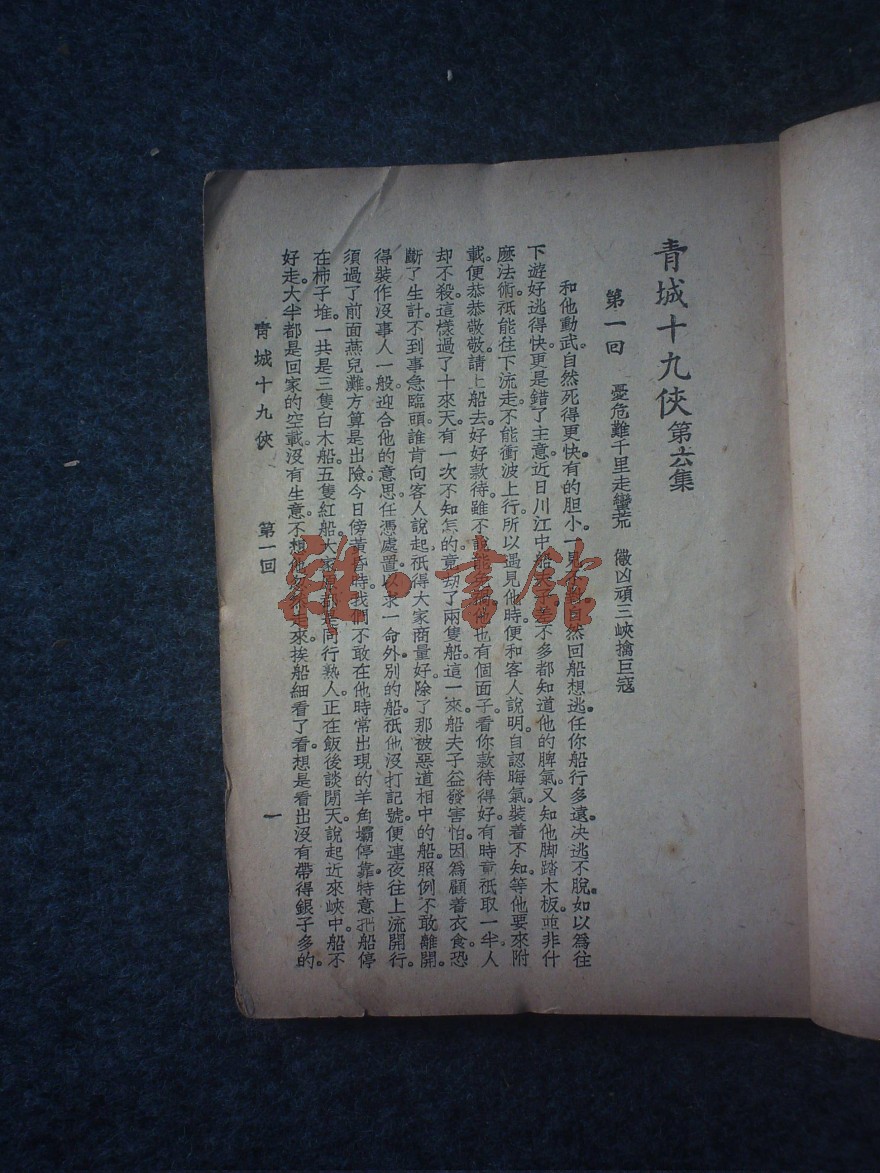 青城十九俠第六集
第一回　憂危難千里走蠻荒　儆凶頑三峽擒巨寇
和他動武。自然死得更快。有的胆小。一見　自然回船想逃。任你船行多遠。決逃不脫。如以爲往
下游好逃得快。更是錯了主意。近日川江中船夫子差不多都知道他的脾氣。又知他脚踏木板。並非什
麽法術。祇能往下流走。不能衝波上行。所以遇見他時。便和客人說明。自認晦氣。裝着不知。等他要來附
載。便恭恭敬敬請上船去。好好款待。雖不說能免禍。他也有個面子。看你款待得好。有時竟祇取一半。人
却不殺。這樣過了十來天。有一次不知怎的。竟刧了兩隻船。這一來船夫子益發害怕。因爲顧着衣食。恐
斷了生計。不到事急臨頭。誰肯向客人說起。祇得大家商量好。除了那被惡道相中的船。照例不敢離開。
得裝作沒事人一般。迎合他的意思。任憑處置。以求一命外。別的船祇他沒打記號。便連夜往上流開行。
須過了前面燕兒灘。方算是出險。今日傍黃昏時。我們不敢在他時常出現的羊角壩停靠。特意把船停
在柿子堆。一共是三隻白木船。五隻紅船。大家　都是同行熟人。正在飯後談閒天。說起近來峽中船不
好走。大半都是回家的空載。沒有生意。不想他　走來。挨船細看了看。想是看出沒有帶得銀子多的。
青城十九俠　第一回　一
雜·書館